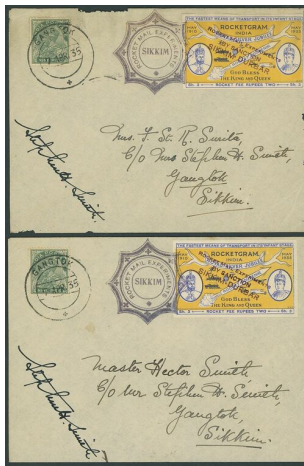 GANGTOK
APR.35
ROCKET MAIL EXPERIMENTS
SIKKIM
THE FASTEST MEANS OF TRANSPORT IN ITS INFANT STAGE
MAY 1910
ROCKETGRAM.
INDIA
SILVER JUBILEE
MAY 1935
BY SANCTION
SIKKIM DURBAR
GOD BLESS
THE KING AND QUEEN
Rs. 2
ROCKET FEE RUPEES TWO
Rs. 2
Stephen H. Smith.
Mrs. F. St. R. Smith,
C/o Mrs Stephen H. Smith,
Gangtok
Sikkim.
GANGTOK
APR.35
ROCKET MAIL EXPERIMENTS
SIKKIM
THE FASTEST MEANS OF TRANSPORT IN ITS INFANT STAGE
MAY 1910
ROCKETGRAM.
INDIA
SILVER JUBILEE
MAY 1935
BY SANCTION
SIKKIM DURBAR
GOD BLESS
THE KING AND QUEEN
Rs. 2
ROCKET FEE RUPEES TWO
Rs. 2
Stephen H. Smith
Master Hector Smith
C/o Mr Stephen H. Smith,
Gangtok,
Sikkim.